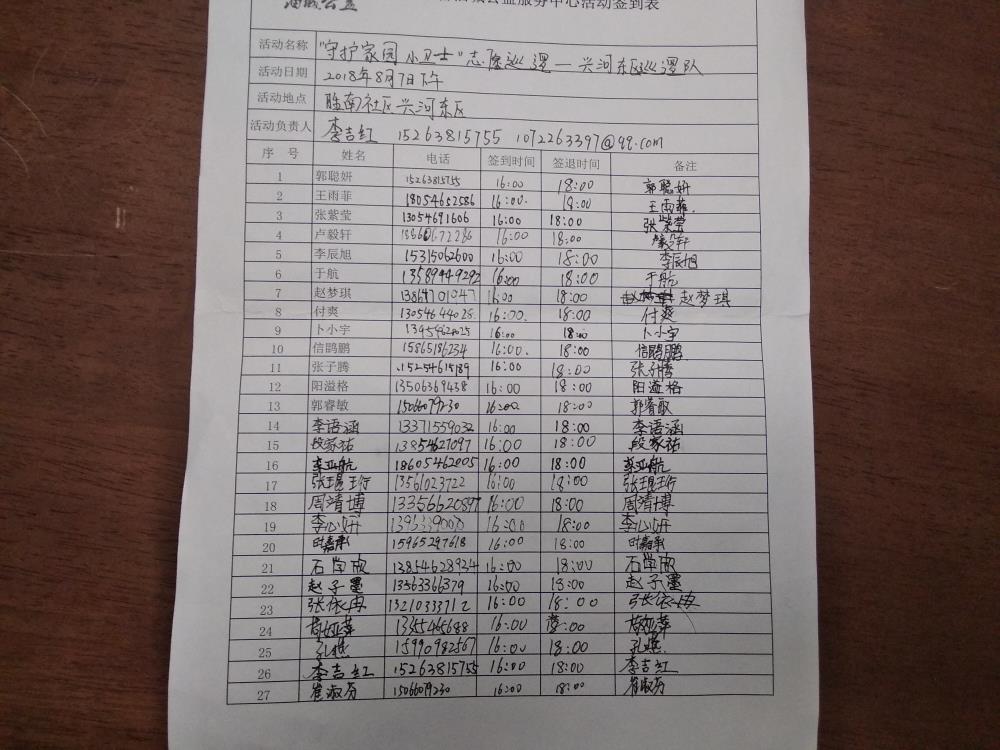 公益服务中心活动签到表
活动名称 "守护家园 小卫士"志愿巡逻—兴河东区巡逻队
活动日期 2018年8月7日下午
活动地点 胜南社区兴河东区
活动负责人 李吉红 15263815755 1072263397@qq.com
序 号 姓名 电话 签到时间 签退时间 备注
1 郭聪妍 15263815755 16:00 18:00 郭聪妍
2 王雨菲 18054652586 16:00. 18:00 王雨菲.
3 张紫莹 13054691606 16:00 18:00 张紫莹
4 卢毅轩 16:00 18:00
5 李辰旭 15315062600 16:00 18:00 李辰旭
6 于航 13589449292 16:00 18:00 于航
7 赵梦琪 13864701947 16:00 18:00 赵梦琪
8 付爽 13054644028. 16:00. 18:00 付爽
9 卜小宇 16:00 18:00 卜小宇
10 信鹃鹏 15865186234 16:00. 18:00 信鹃鹏
11 张子腾 .15254615189 16:00 18:00 张子腾
12 阳溢格 13506369438 16:00 18:00 阳溢格
13 郭睿敏 15066079230 16:00 18:00 郭睿敏
14 李语涵 13371559032 16:00 18:00 李语涵
15 段家祐 13854627097 16:00 18:00 段家祐
16 18605462005 16:00 18:00
17 13561023722 16:00 18:00
18 周靖博 13356620897 16:00 18:00 周靖博
19 李心妍 16:00 18:00 李心妍
20 叶嘉承 15965297618 16:00 18:00 叶嘉承
21 石学欣 13854628934 16:00 18:00 石学欣
22 赵子墨 13563366379 16:00 18:00 赵子墨
23 张依冉 13210333712 16:00 18:00 张依冉
24 16:00
25 孔燃 15990982567 16:00 18:00 孔燃.
26 李吉红 15263815755 16:00 18:00 李吉红
27 崔淑芬 15066079230 16:00 18:00 崔淑芬